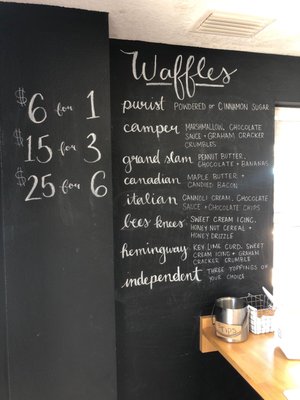 $6 for 1
$15 for 3
$25 for 6
Waffles
purist POWDERED OR CINNAMON SUGAR
camper MARSHMALLOW, CHOCOLATE
SAUCE + GRAHAM CRACKER
CRUMBLES
grand slam PEANUT BUTTER,
CHOCOLATE + BANANAS
canadian MAPLE BUTTER +
CANDIED BACON
italian CANNOLI CREAM, CHOCOLATE
SAUCE + CHOCOLATE CHIPS
bees knees SWEET CREAM ICING,
HONEY NUT CEREAL +
HONEY DRIZZLE
hemingway KEY LIME CURD, SWEET
CREAM ICING + GRAHAM
CRACKER CRUMBLE
independent THREE TOPPINGS OF
YOUR CHOICE